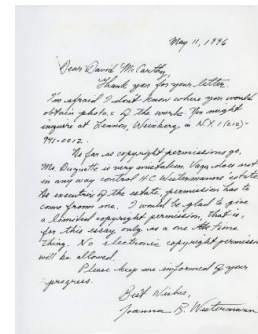 May 11, 1996
Dear David McCarthy,
Thank you for your letter.
I'm afraid I don't know where you would
obtain photos of the works. You might
inquire at Lennon, Weinberg in N.Y. 1 (212)-
941-0012.
As far as copyright permissions go,
Mr. is very mistaken. Vaga does not
in any way control H.C. Westermann's estate.
As executrix of the estate, permission has to
come from me. I would be glad to give
a limited copyright permission, that is,
for this essay only, as a one time
thing. No electronic copyright permission
will be allowed.
Please keep me informed of your
progress.
Best Wishes,
Joanna B. Westermann